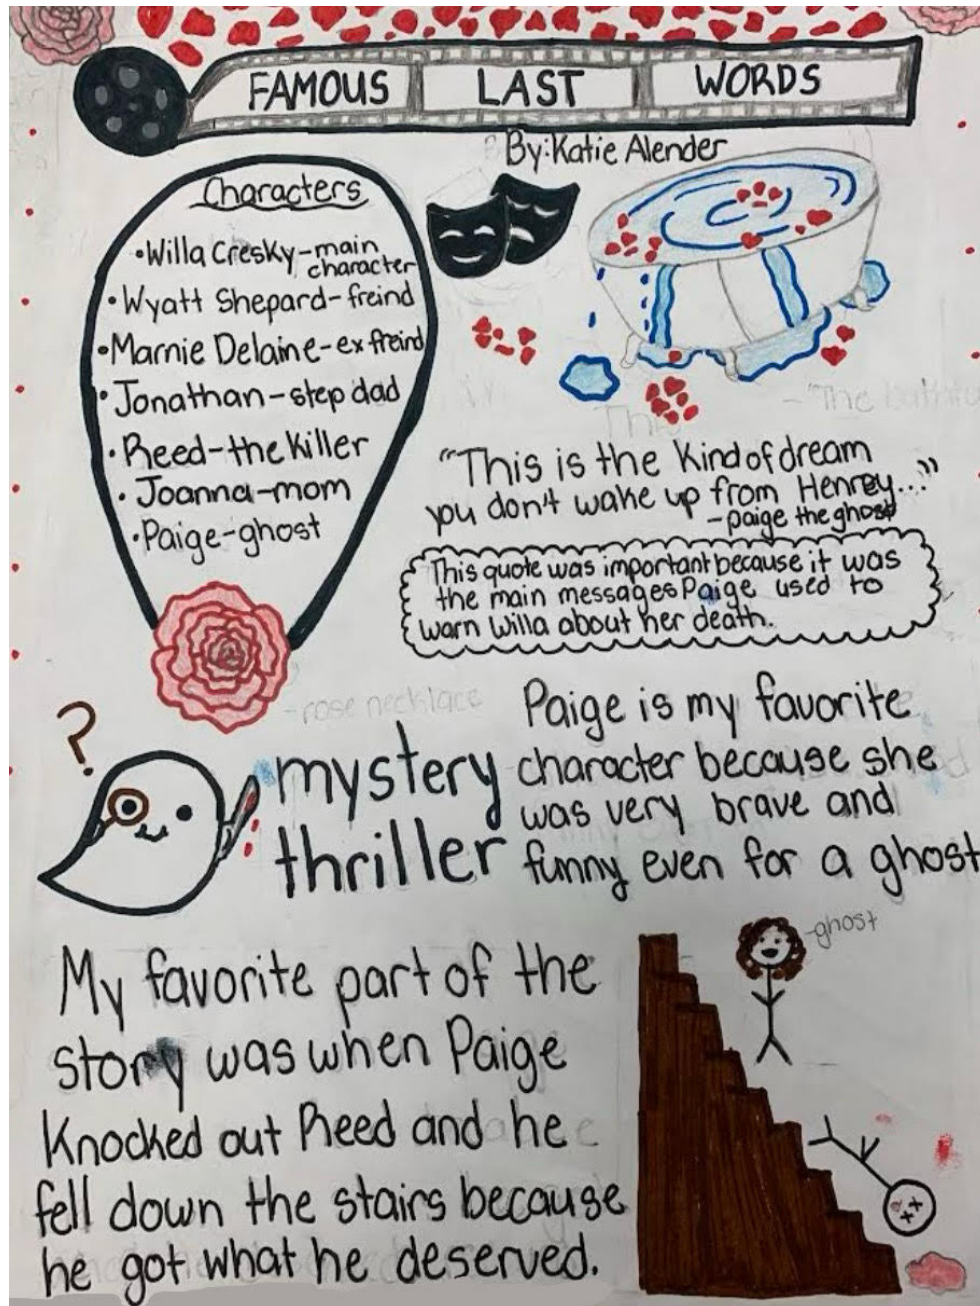 FAMOUS LAST WORDS
By: Katie Alender
Characters
•Willa Cresky-main
character
•Wyatt Shepard-freind
•Marnie Delaine-ex freind
•Jonathan-step dad
•Reed-the killer
•Joanna-mom
•Paige-ghost
-"The bathtu
Thi
"This is the kind of dream
you don't wake up from Henrey..."
-paige the ghost
This quote was important because it was
the main messages Paige used to
warn Willa about her death.
-rose necklace
?
mystery
thriller
Paige is my favorite
character because she
was very brave and
funny even for a ghost
My favorite part of the
story was when Paige
knocked out Reed and he
fell down the stairs because
he got what he deserved.
-ghost